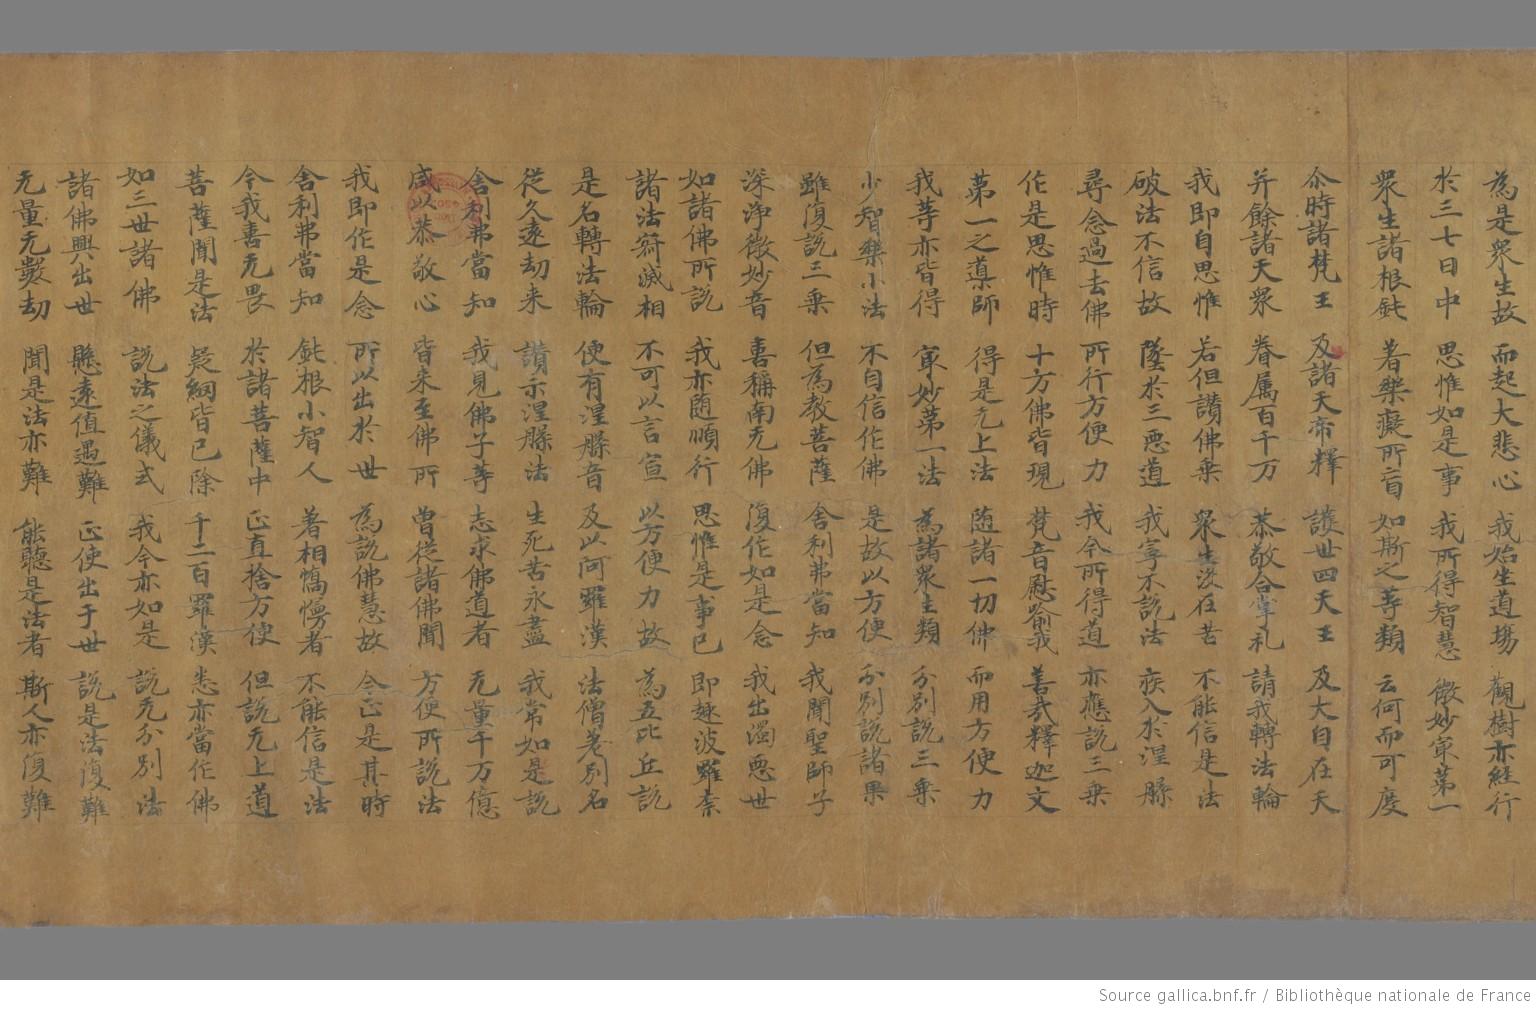 為是衆生故 而起大悲心 我始坐道場 觀樹亦經行
於三七日中 思惟如是事 我所得智慧 微妙冣第一
衆生諸根鈍 著樂癡所盲 如斯之等類 云何而可度
尒時諸梵王 及諸天帝釋 護世四天王 及大自在天
并餘諸天衆 眷属百千万 恭敬合掌礼 請我轉法輪
我即自思惟 若但讚佛乗 衆生没在苦 不能信是法
破法不信故 墜於三惡道 我寧不説法 疾入於涅槃
尋念過去佛 所行方便力 我今所得道 亦應説三乗
作是思惟時 十方佛皆現 梵音慰喻我 善哉釋迦文
第一之導師 得是无上法 随諸一切佛 而用方便力
我等亦皆得 冣妙第一法 為諸衆生類 分別説三乗
少智樂小法 不自信作佛 是故以方便 分別説諸果
雖復説三乗 但為教菩薩 舍利弗當知 我聞聖師子
深淨微妙音 喜稱南无佛 復作如是念 我出濁惡世
如諸佛所説 我亦随順行 思惟是事已 即趣波羅柰
諸法寂滅相 不可以言宣 以方便力故 為五比丘説
是名轉法輪 便有涅槃音 及以阿羅漢 法僧差別名
從久遠劫来 讚示涅槃法 生死苦永盡 我常如是説
舍利弗當知 我見佛子等 志求佛道者 无量千万億
咸以恭敬心 皆来至佛所 曽從諸佛聞 方便所説法
我即作是念 所以出於世 為説佛慧故 今正是其時
舍利弗當知 鈍根小智人 著相憍慢者 不能信是法
今我喜无畏 於諸菩薩中 正直捨方便 但説无上道
菩薩聞是法 疑網皆已除 千二百羅漢 悉亦當作佛
如三世諸佛 説法之儀式 我今亦如是 説无分別法
諸佛興出世 懸遠值遇難 正使出于世 説是法復難
无量无數劫 聞是法亦難 能聽是法者 斯人亦復難
Source gallica.bnf.fr / Bibliothèque nationale de France